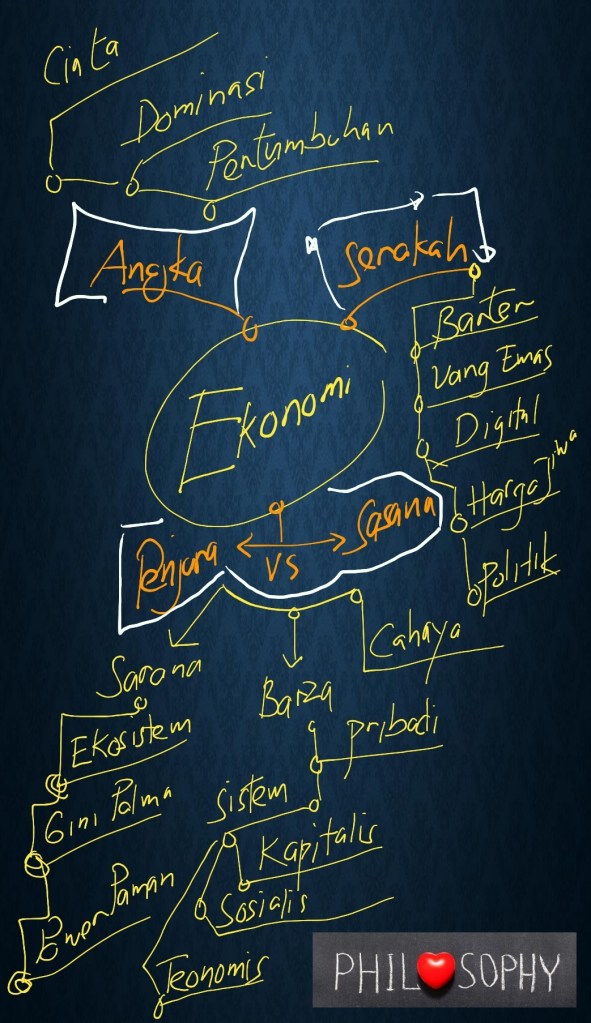 Cinta
Dominasi
Pertumbuhan
Angka
Serakah
Barter
Uang Emas
Digital
Harga Jiwa
Politik
Ekonomi
Penjara
VS
Sasana
Cahaya
Sarana
Barza
Ekosistem
Pribadi
Gini Palma
Sistem
Kapitalis
Power Paman
Sosialis
Teonomis
PHILOSOPHY